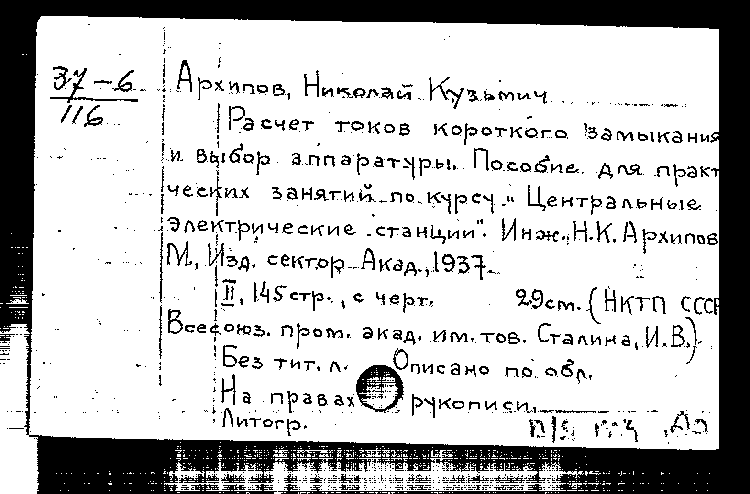 37-6
116
Архипов, Николай Кузьмич
Расчет токов короткого замыкания
и выбор аппаратуры. Пособие для практ
ческих занятий по курсу „Центральные
электрические станции". Инж. Н.К. Архипов
М., Изд. сектор Акад., 1937.
II, 145 стр., с черт. 29 см. (НКТП СССР
Всесоюз. пром. акад. им. тов. Сталина, И.В.)
Без тит. л. Описано по обл.
На правах рукописи.
Литогр.